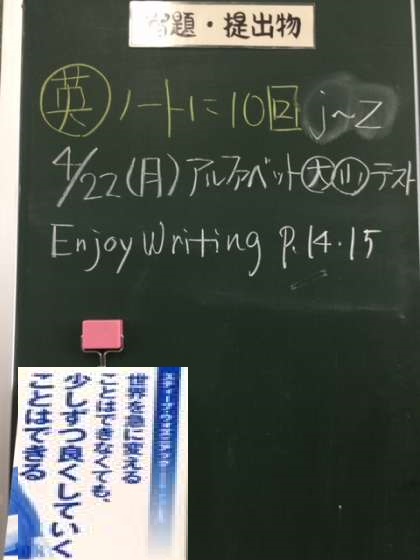 宿題・提出物
英 ノートに10回 j~z
4/22(月)アルファベット大小テスト
Enjoy Writing P.14・15
スティーブ・ウォズニアック
世界を急に変える
ことはできなくても、
少しずつ良くしていく
ことはできる